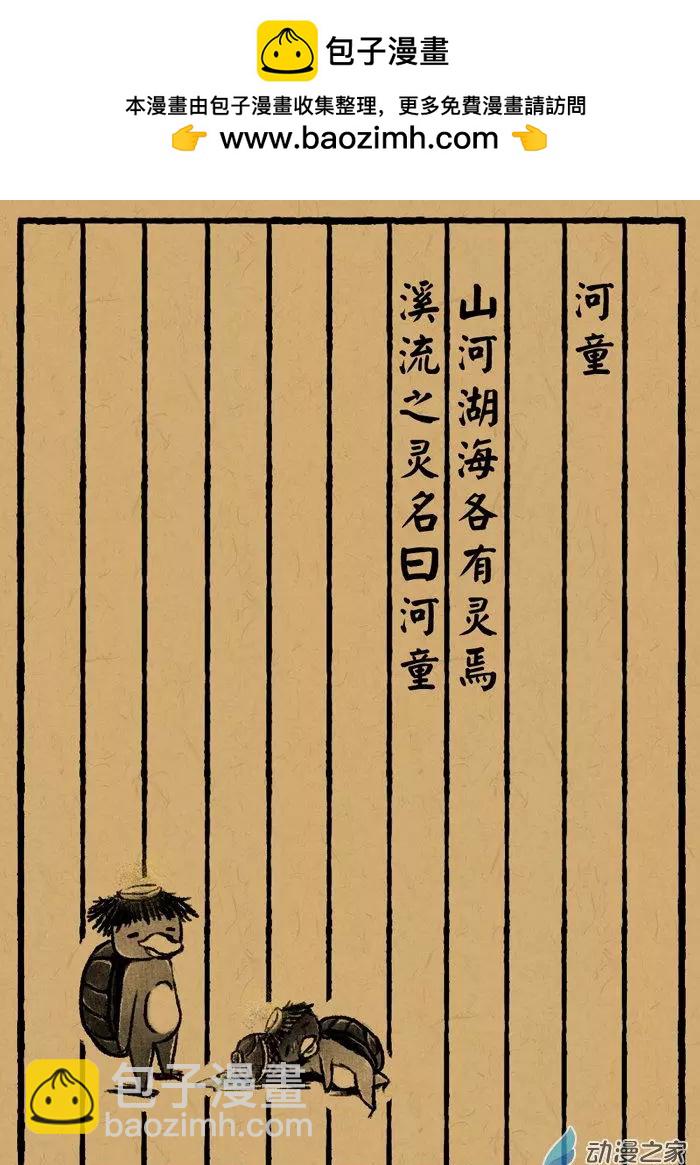 包子漫畫
本漫畫由包子漫畫收集整理，更多免費漫畫請訪問
👉 www.baozimh.com 👈
河童
山河湖海各有灵焉
溪流之灵名曰河童
包子漫畫
baozimh.com
动漫之家